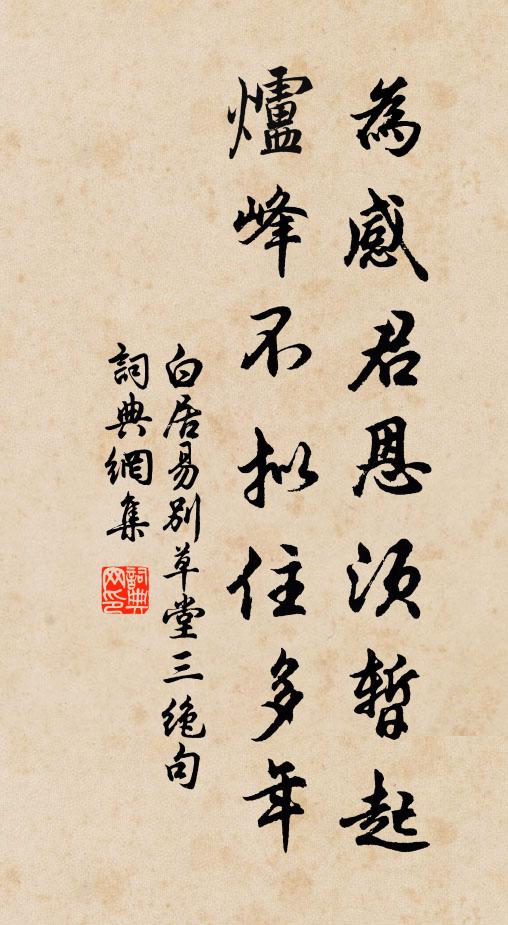 為感君恩須暫起
爐峰不擬住多年
白居易別草堂三絕句
詞典網集
詞典網印